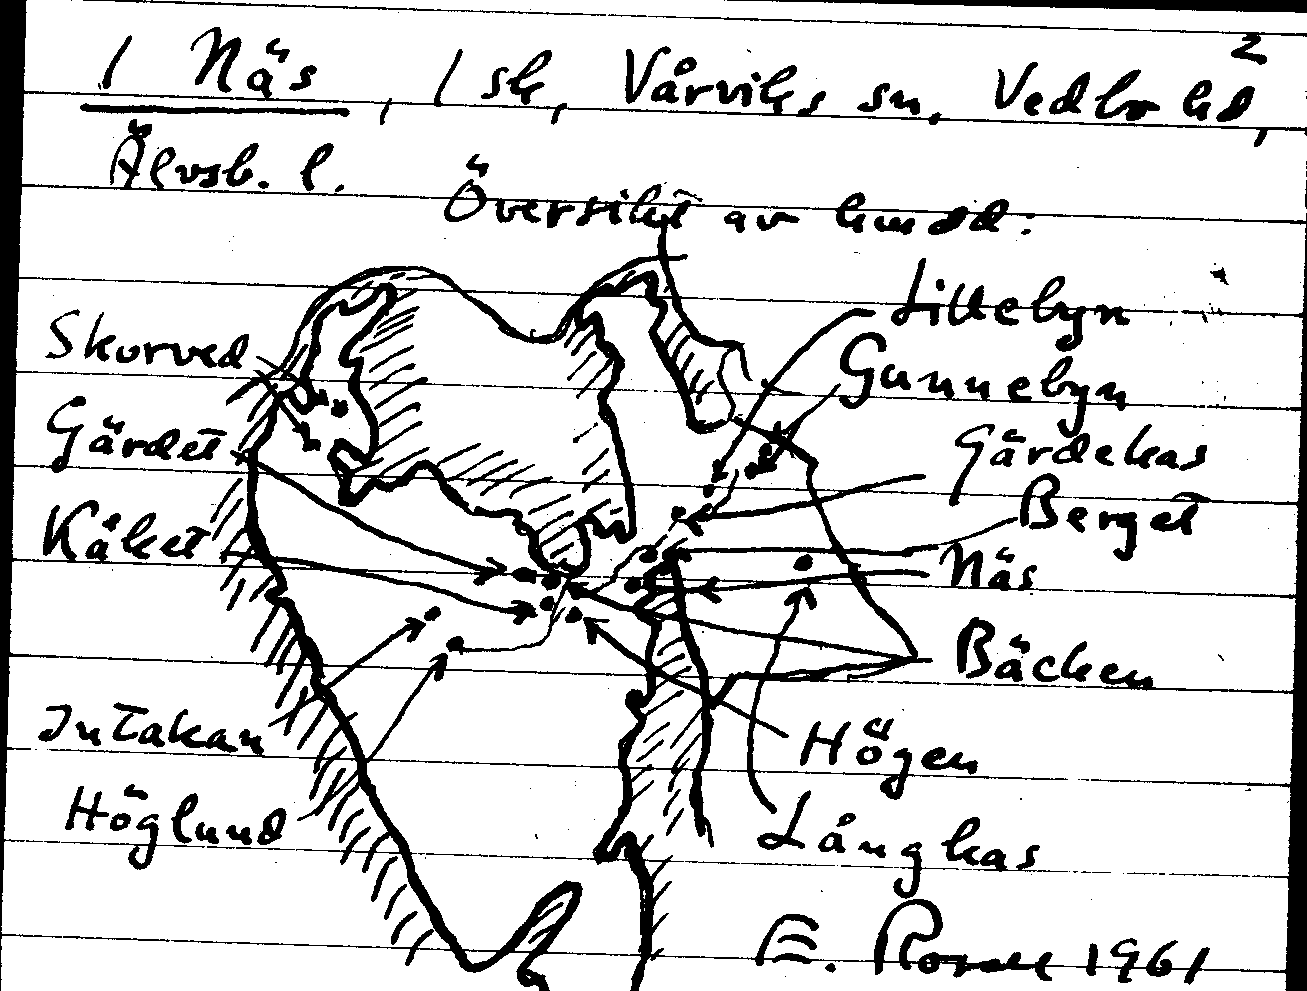 2
1 Näs, 1 sk, Vårviks sn, Vedbo hd,
Älvsb. l.
Översikt av
Lillebyn
Skorved
Gunnebyn
Gärdet
Gärdekas
Berget
Kåket
Näs
Bäcken
Intakan
Högen
Höglund
Långkas
E. 1961